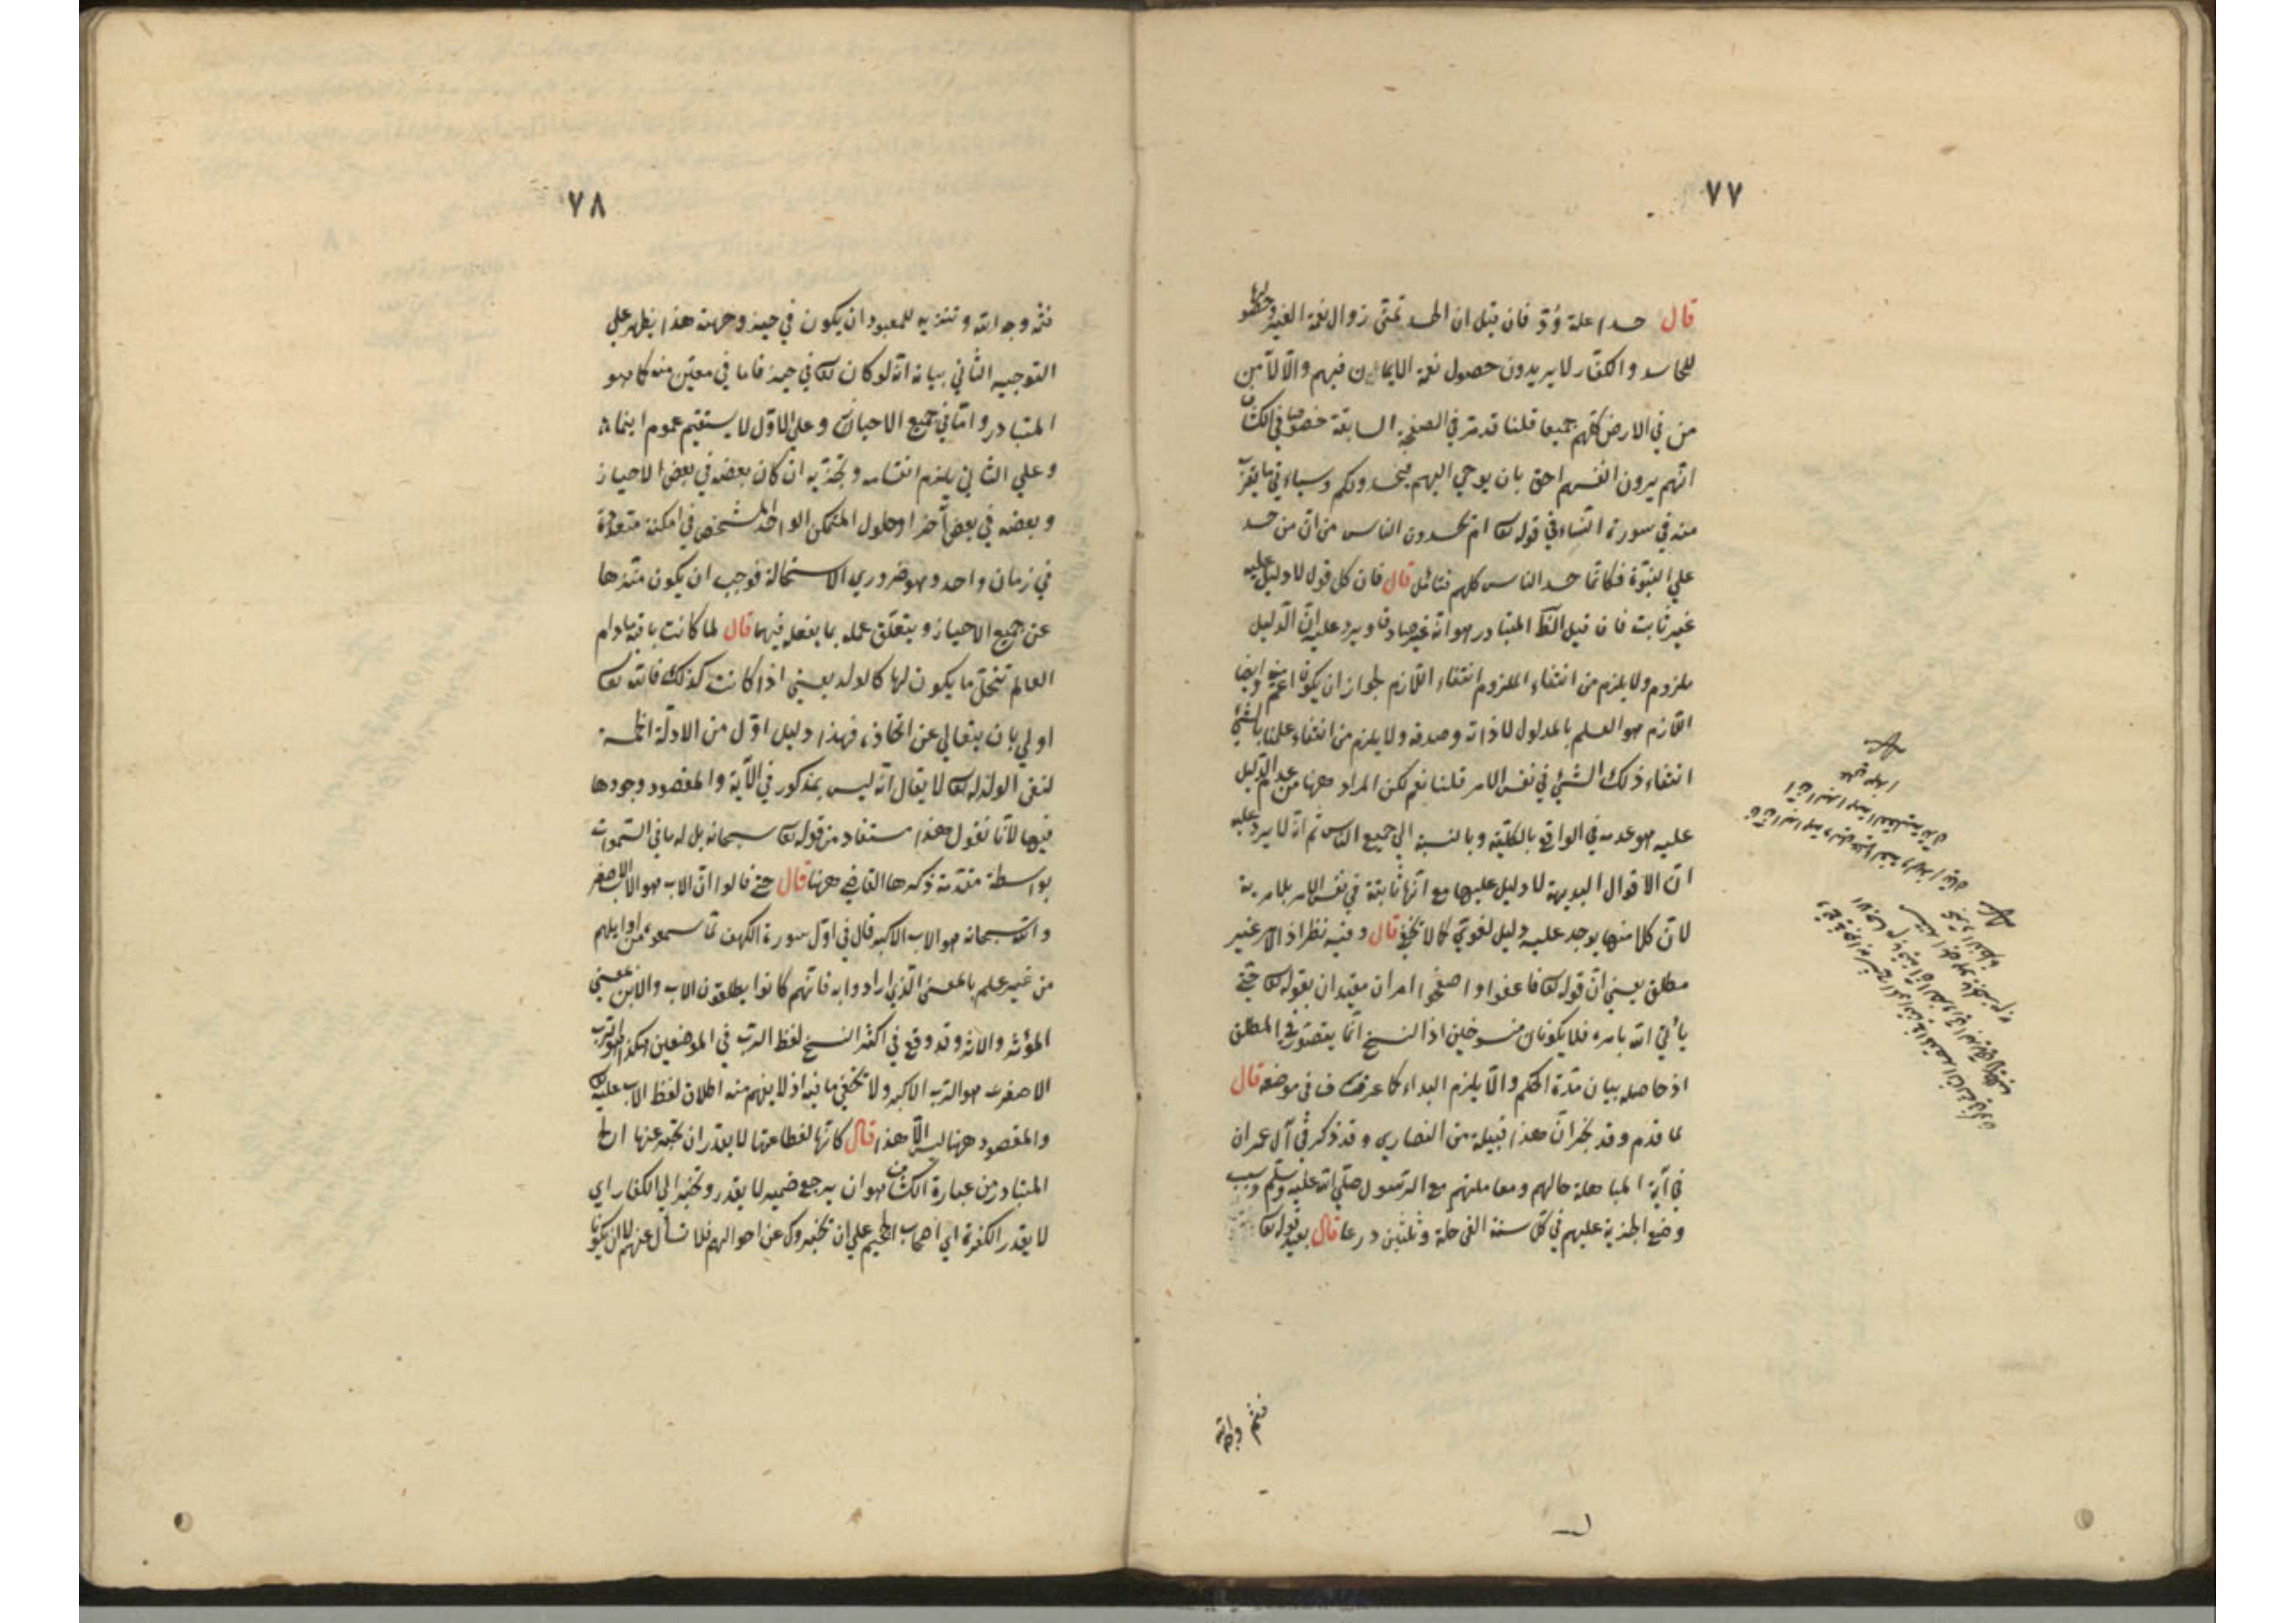 ٧٧
قال حسدا علة ودّ فان قيل ان الحسد تمنّي زوال نعمة الغير وحصولها
للحاسد والكفار لا يريدون حصول نعمة الايمان فيهم والّا لآمن
من في الارض كلهم جميعا قلنا قد مرّ في الصفحة السابقة خصوصا في الكشاف
انّهم يرون انفسهم احق بان يوحي اليهم فيحسدونكم وسيأتي ما يقرب
منه في سورة النساء في قوله تعا ام يحسدون الناس من ان من حسد
علي النبوّة فكانّما حسد الناس كلهم فتامّل قال فان كل قول لا دليل عليه
غير ثابت فان قيل المتبادر هو انّه غير صادق ويرد عليه انّ الدّليل
ملزوم ولا يلزم من انتفاء الملزوم انتفاء اللّازم لجواز ان يكون اعمّ وايضا
اللّازم هو العلم بالمدلول لا ذاته وصدقه ولا يلزم من انتفاء علمنا بالشئ
انتفاء ذلك الشئ في نفس الامر قلنا نعم لكن المراد ههنا من عدم الدّليل
عليه هو عدمه في الواقع بالكلّية وبالنسبة الي جميع الناس ثم انّه لا يرد عليه
انّ الاقوال البديهة لا دليل عليها مع انّها ثابتة في نفس الامر بلا مرية
لانّ كلا منها يوجد عليه دليل لغويّ كما لا يخفي قال وفيه نظر اذ الامر غير
مطلق يعني انّ قوله تعا فاعفوا واصفحوا امران مقيدان بقوله تعا حتي
يأتي الله بامره فلا يكونان منسوخين اذ النسخ انّما يتصوّر في المطلق
اذ حاصله بيان مدّة الحكم والّا يلزم البداء كما عرفت في موضعه قال
لما قدم وفد نجران هذا قبيلة من النصاري وقد ذكر في آل عمران
في آية المباهلة حالهم ومعاملتهم مع الرسول صلّي الله عليه وسلّم وسبب
وضع الجزية عليهم في كلّ سنة الفي حلة وثلثين درعا قال بعيد قوله تعا
فثمّ وجه الله
٧٨
فثمّ وجه الله وتنزيه للمعبود ان يكون في حيز وجهة هذا يظهر علي
التوجيه الثّاني بيانه انّه لو كان تعا في حيز فاما في معيّن منه كما هو
المتبادر وامّا في جميع الاحياز وعلي الاوّل لا يستقيم عموم اينما
وعلي الثاني يلزم انقسامه وتجزّيه ان كان بعضه في بعض الاحياز
وبعضه في بعض آخر او حلول المتمكن الواحد المشخص في امكنة متعددة
في زمان واحد وهو ضروري الاستحالة فوجب ان يكون منزها
عن جميع الاحياز ويتعلّق علمه بما يفعل فيها قال لما كانت باقية ما دام
العالم تتخذ ما يكون لها كالولد يعني اذا كانت كذلك فالله تعا
اولي بان يتعالي عن اتخاذه فهذا دليل اوّل من الادلّة الخمسة
لنفي الولد له تعا لا يقال انّه ليس بمذكور في الآية والمقصود وجودها
فيها لانّا نقول هذا مستفاد من قوله تعا سبحانه بل له ما في السّموات
بواسطة مقدّمة ذكرها القاضي ههنا قال حتي قالوا انّ الاب هو الاب الاصغر
والله سبحانه هو الاب الاكبر قال في اوّل سورة الكهف ممّا سمعوه من اوايلهم
من غير علم بالمعني الّذي ارادوا به فانّهم كانوا يطلقون الاب والابن بمعني
المؤثر والاثر وقد وقع في اكثر النسخ لفظ الربّ في الموضعين هكذا هو الربّ
الاصغر هو الربّ الاكبر ولا يخفي ما فيه اذ لا يفهم منه اطلاق لفظ الاب عليه
والمقصود ههنا ليس الّا هذا قال كانّها لفظاعتها لا يقدر ان يخبر عنها الخ
المتبادر من عبارة الكشاف هو ان يرجع ضمير لا يقدر ويخبر الي الكفار اي
لا يقدر الكفرة اي اصحاب الجحيم علي ان يخبروك عن احوالهم فلا تسأل عنهم لا ان يكون